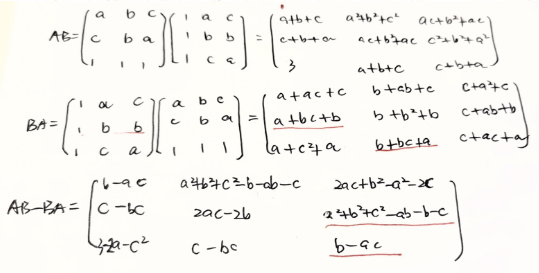 AB= (a b c / c b a / 1 1 1) (1 a c / 1 b b / 1 c a) = (a+b+c a²+b²+c² ac+b²+ac / c+b+a ac+b²+ac c²+b²+a² / 3 a+b+c c+b+a)
BA= (1 a c / 1 b b / 1 c a) (a b c / c b a / 1 1 1) = (a+ac+c b+ab+c c+a²+c / a+bc+b b+b²+b c+ab+b / a+c²+a b+bc+a c+ac+a)
AB-BA= (b-ac a²+b²+c²-b-ab-c 2ac+b²-a²-2c / c-bc 2ac-2b a²+b²+c²-ab-b-c / 3-2a-c² c-bc b-ac)